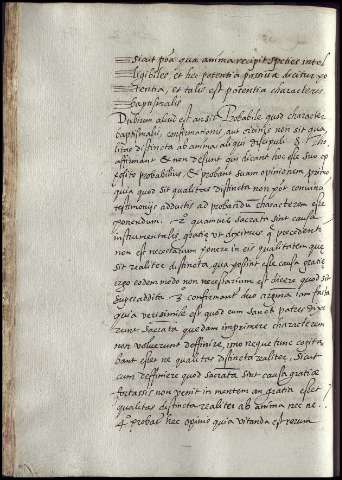 sicut pōa qua anima recipit species intel
ligibiles, et hec potentia passiua dicitur po
tentia, et talis est potentia characteris
baptismalis
Dubium aliud est an sit Probabile quod character
baptismalis, confirmationis aut ordinis non sit qua
litas distincta ab anima aliqui discipuli S. Tho
affirmant & non desunt qui dicant hoc esse suo ex
probabilius, & probant suam opinionem primo
quia quod sit qualitas distincta non pōt conuinci
testimonijs adductis ad probandū characterem esse
ponendum. 2º quamuis sacrata sint causa
instrumentalis gratię vt diximus q̄ precedente
non est necessarium ponere in eis qualitatem que
sit realiter distincta, qua possint esse causa gratię
ergo eodem modo non necessarium est dicere quod sit
superaddita. 3 confirmant duo argma tam facta
quia verisimile est quod cum sancti patres dixe
runt sacrata quędam imprimere characterem
non voluerunt deffinire, imo neque tunc cogita
bant esset ne qualitas distincta realiter, sicut
cum deffiniere quod sacrata sint causa gratiae
fortassis non venit in mentem an gratia esset
qualitas distincta realiter ab anima nec ne.
4º probat hec opinio quia vitanda est rerum